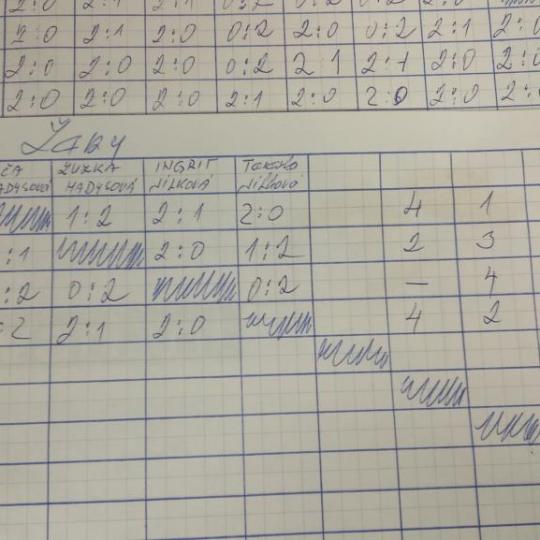 2:0 2:1 2:0 0:2 2:0 0:2 2:1 2:0
2:0 2:0 2:0 0:2 2 1 2:1 2:0 2:0
2:0 2:0 2:0 2:1 2:0 2:0 2:0 2:
ZUZKA INGRIT
HADYSOVÁ JÍLKOVÁ
1:2 2:1 2:0 4 1
:1 2:0 1:2 2 3
:2 0:2 0:2 — 4
:2 2:1 2:0 4 2